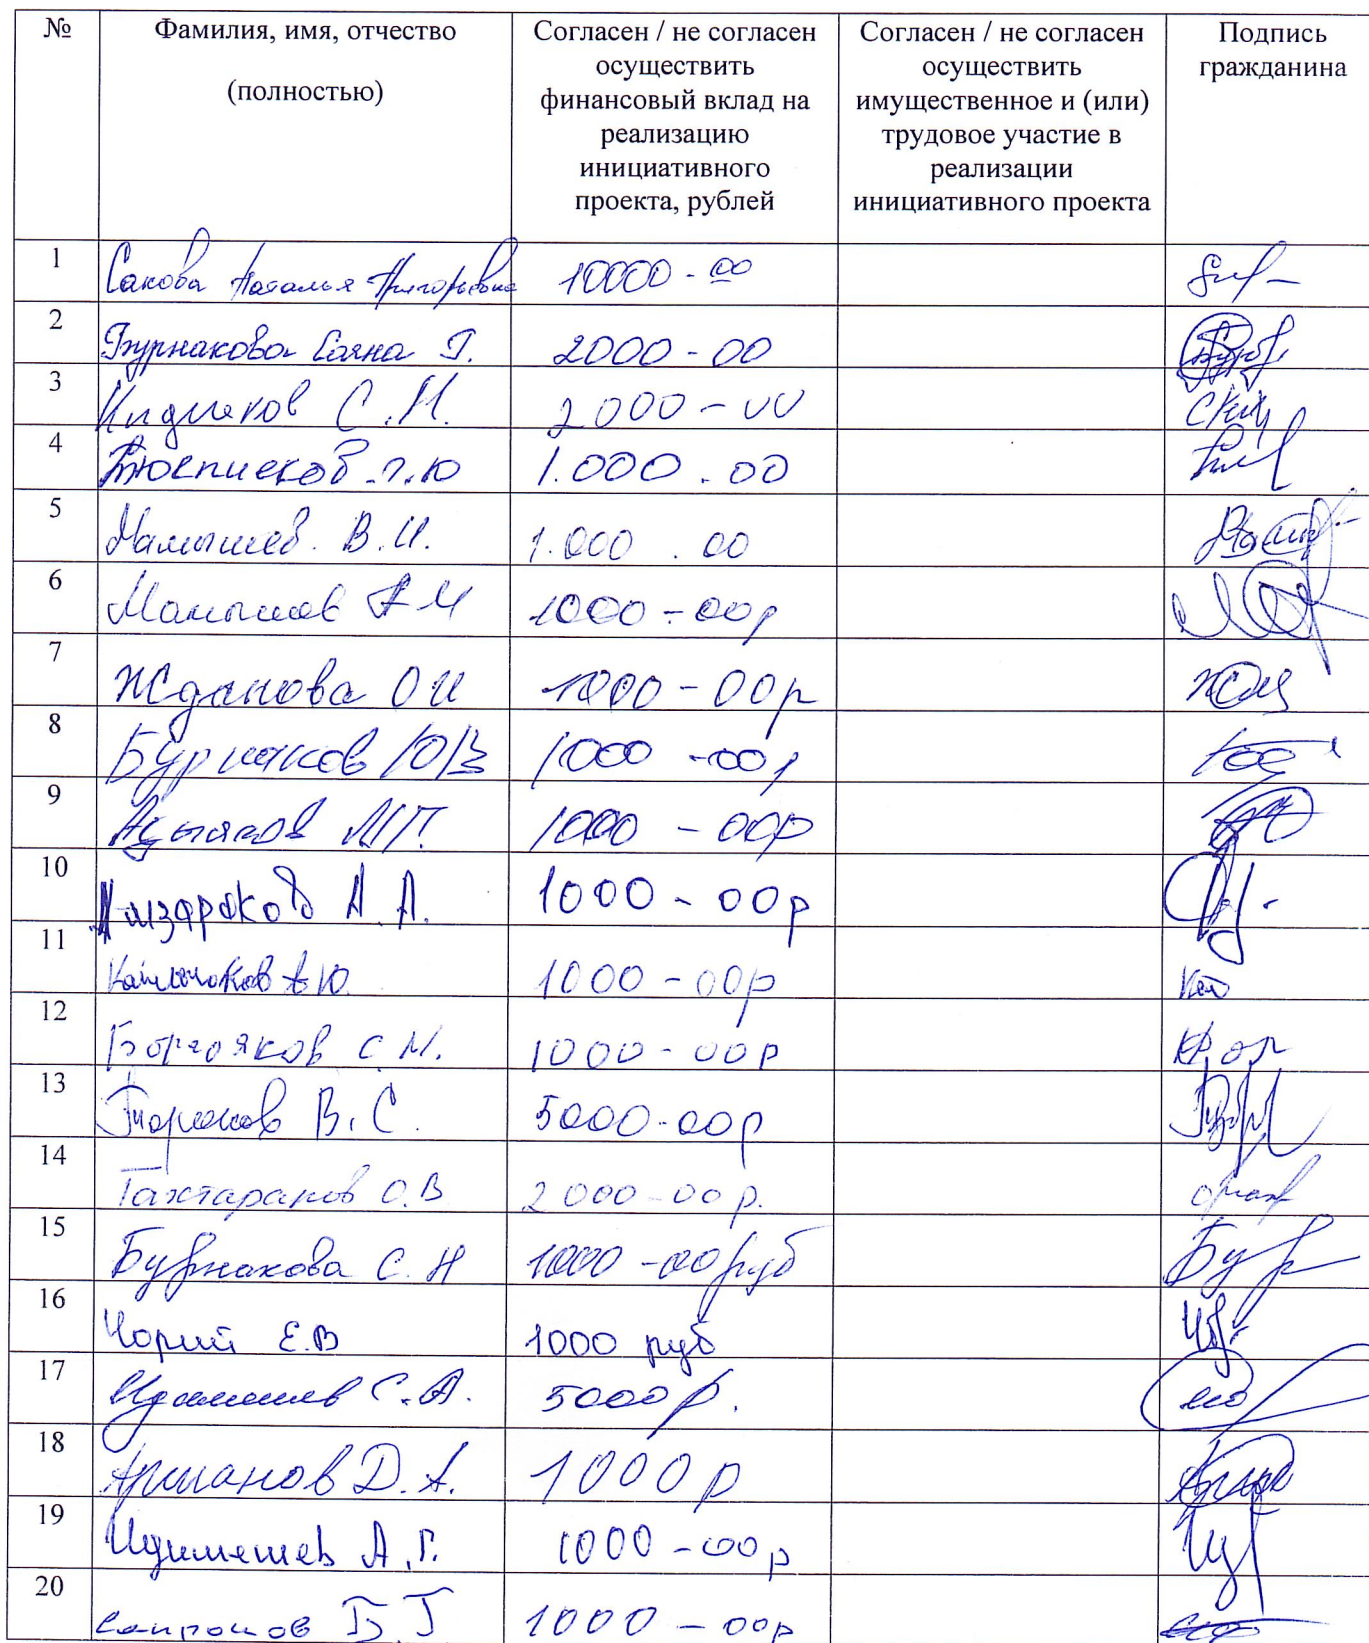 № Фамилия, имя, отчество (полностью) Согласен / не согласен осуществить финансовый вклад на реализацию инициативного проекта, рублей Согласен / не согласен осуществить имущественное и (или) трудовое участие в реализации инициативного проекта Подпись гражданина
1 Сакова Наталья Григорьевна 10000-00
2 Бурнакова Саяна Г. 2000-00
3 С. 2000-00
4 Г.Ю 1.000.00
5 Мамышев. В.И. 1.000.00
6 Мамышев 1000-00р
7 Жданова ОИ 1000-00р
8 Бурнаков ЮВ 1000-00р
9 МП. 1000-00р
10 Кызараков А.А. 1000-00р
11 Ю. 1000-00р
12 Боргояков С.М. 1000-00р
13 В.С. 5000-00р
14 Тахтараков О.В 2000-00р.
15 Бурнакова С.Н 1000-00руб
16 Чорий Е.В 1000 руб
17 С.А. 5000р.
18 Аршанов Д.А. 1000р
19 Идимешев А.Г. 1000-00р
20 Б.Г 1000-00р